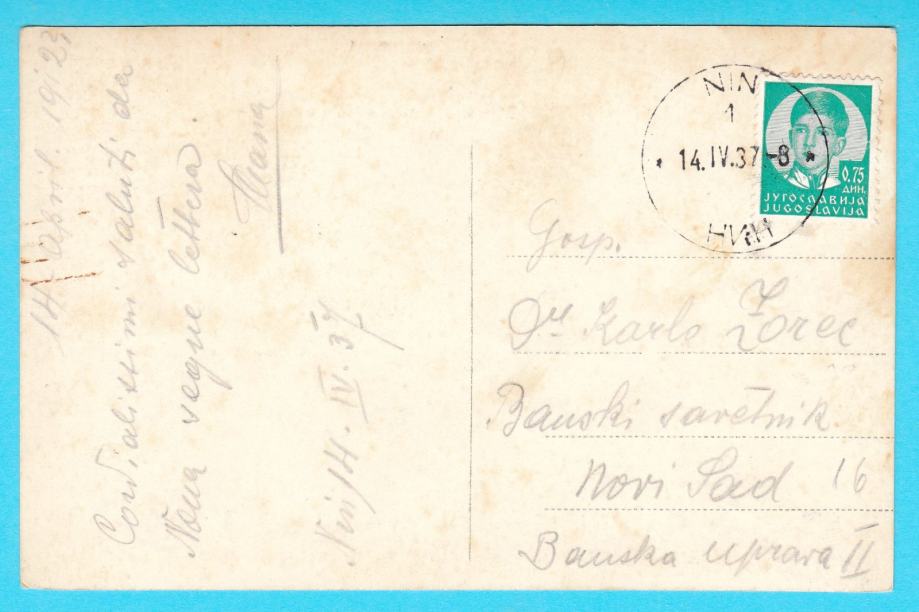 14. April. 19
Cordialissimi saluti da
Nona segue lettera.
Nin 14. IV. 37
NIN
1
14.IV.37-8
НИН
0.75
ДИН.
ЈУГОСЛАВИЈА
JUGOSLAVIJA
Gosp.
Dr Karlo Zorec
Banski savetnik
Novi Sad 16
Banska uprava II